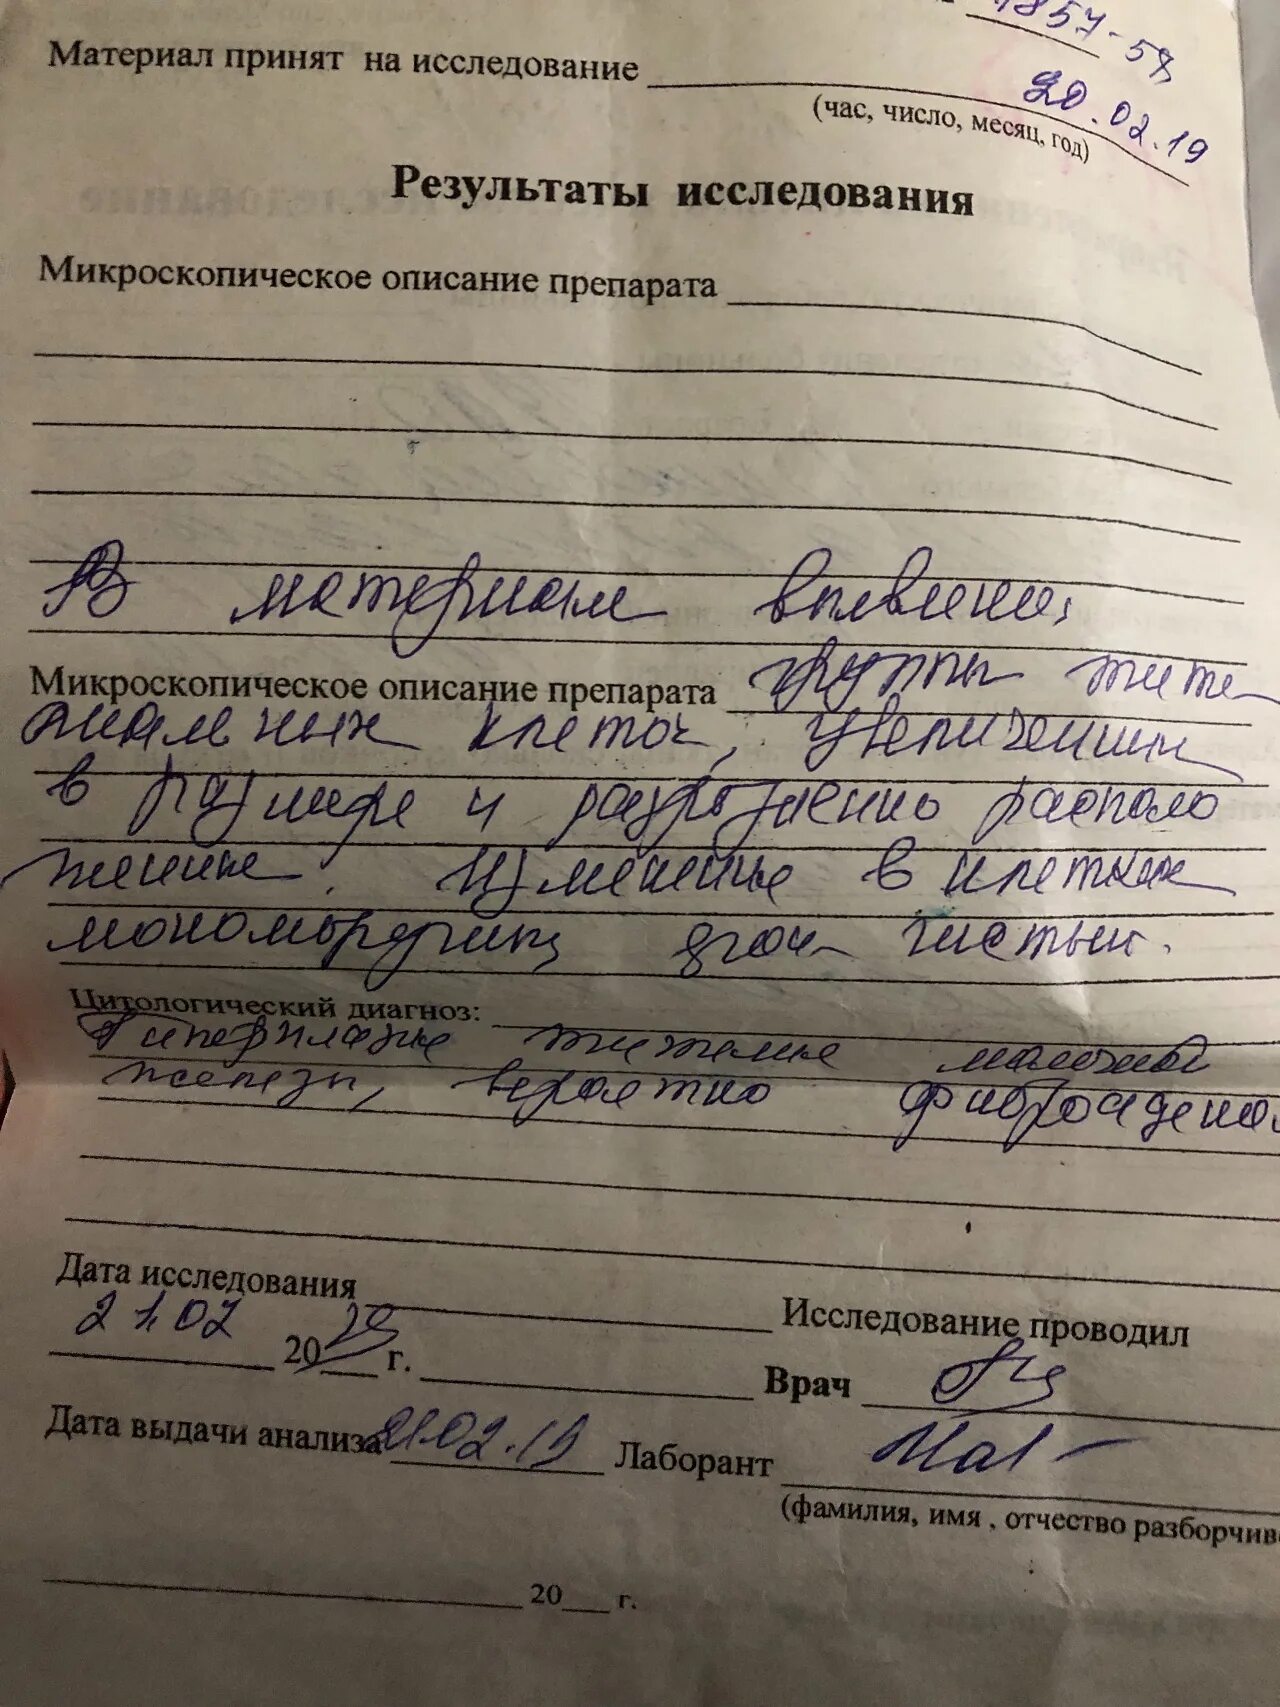 1857-58
Материал принят на исследование
20.02.19
(час, число, месяц, год)
Результаты исследования
Микроскопическое описание препарата
В материале выявлены
Микроскопическое описание препарата группы эпите
лиальных клеток, увеличенных
в размере и разрозненно располо
женные. Изменения в клетках
мономорфны, фон чистый.
Цитологический диагноз:
Гиперплазия эпителия молочной
железы, вероятно фиброаденома
Дата исследования
21.02 2019 г.
Исследование проводил
Врач
Дата выдачи анализа 21.02.19 Лаборант
(фамилия, имя , отчество разборчив
20 г.